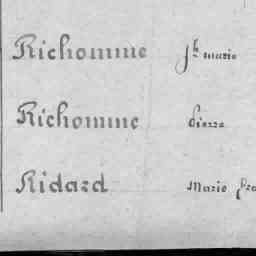 Richomme Jh marie
Richomme Pierre
Ridard Marie